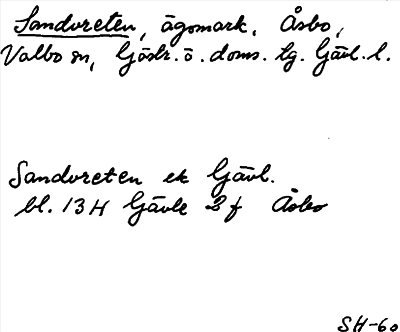 Sandvreten, ägomark, Åsbo,
Valbo sn, Gästr. ö. doms. tg. Gävl. l.
Sandvreten ek Gävl.
bl. 13 H Gävle 2 f Åsbo
SH-60